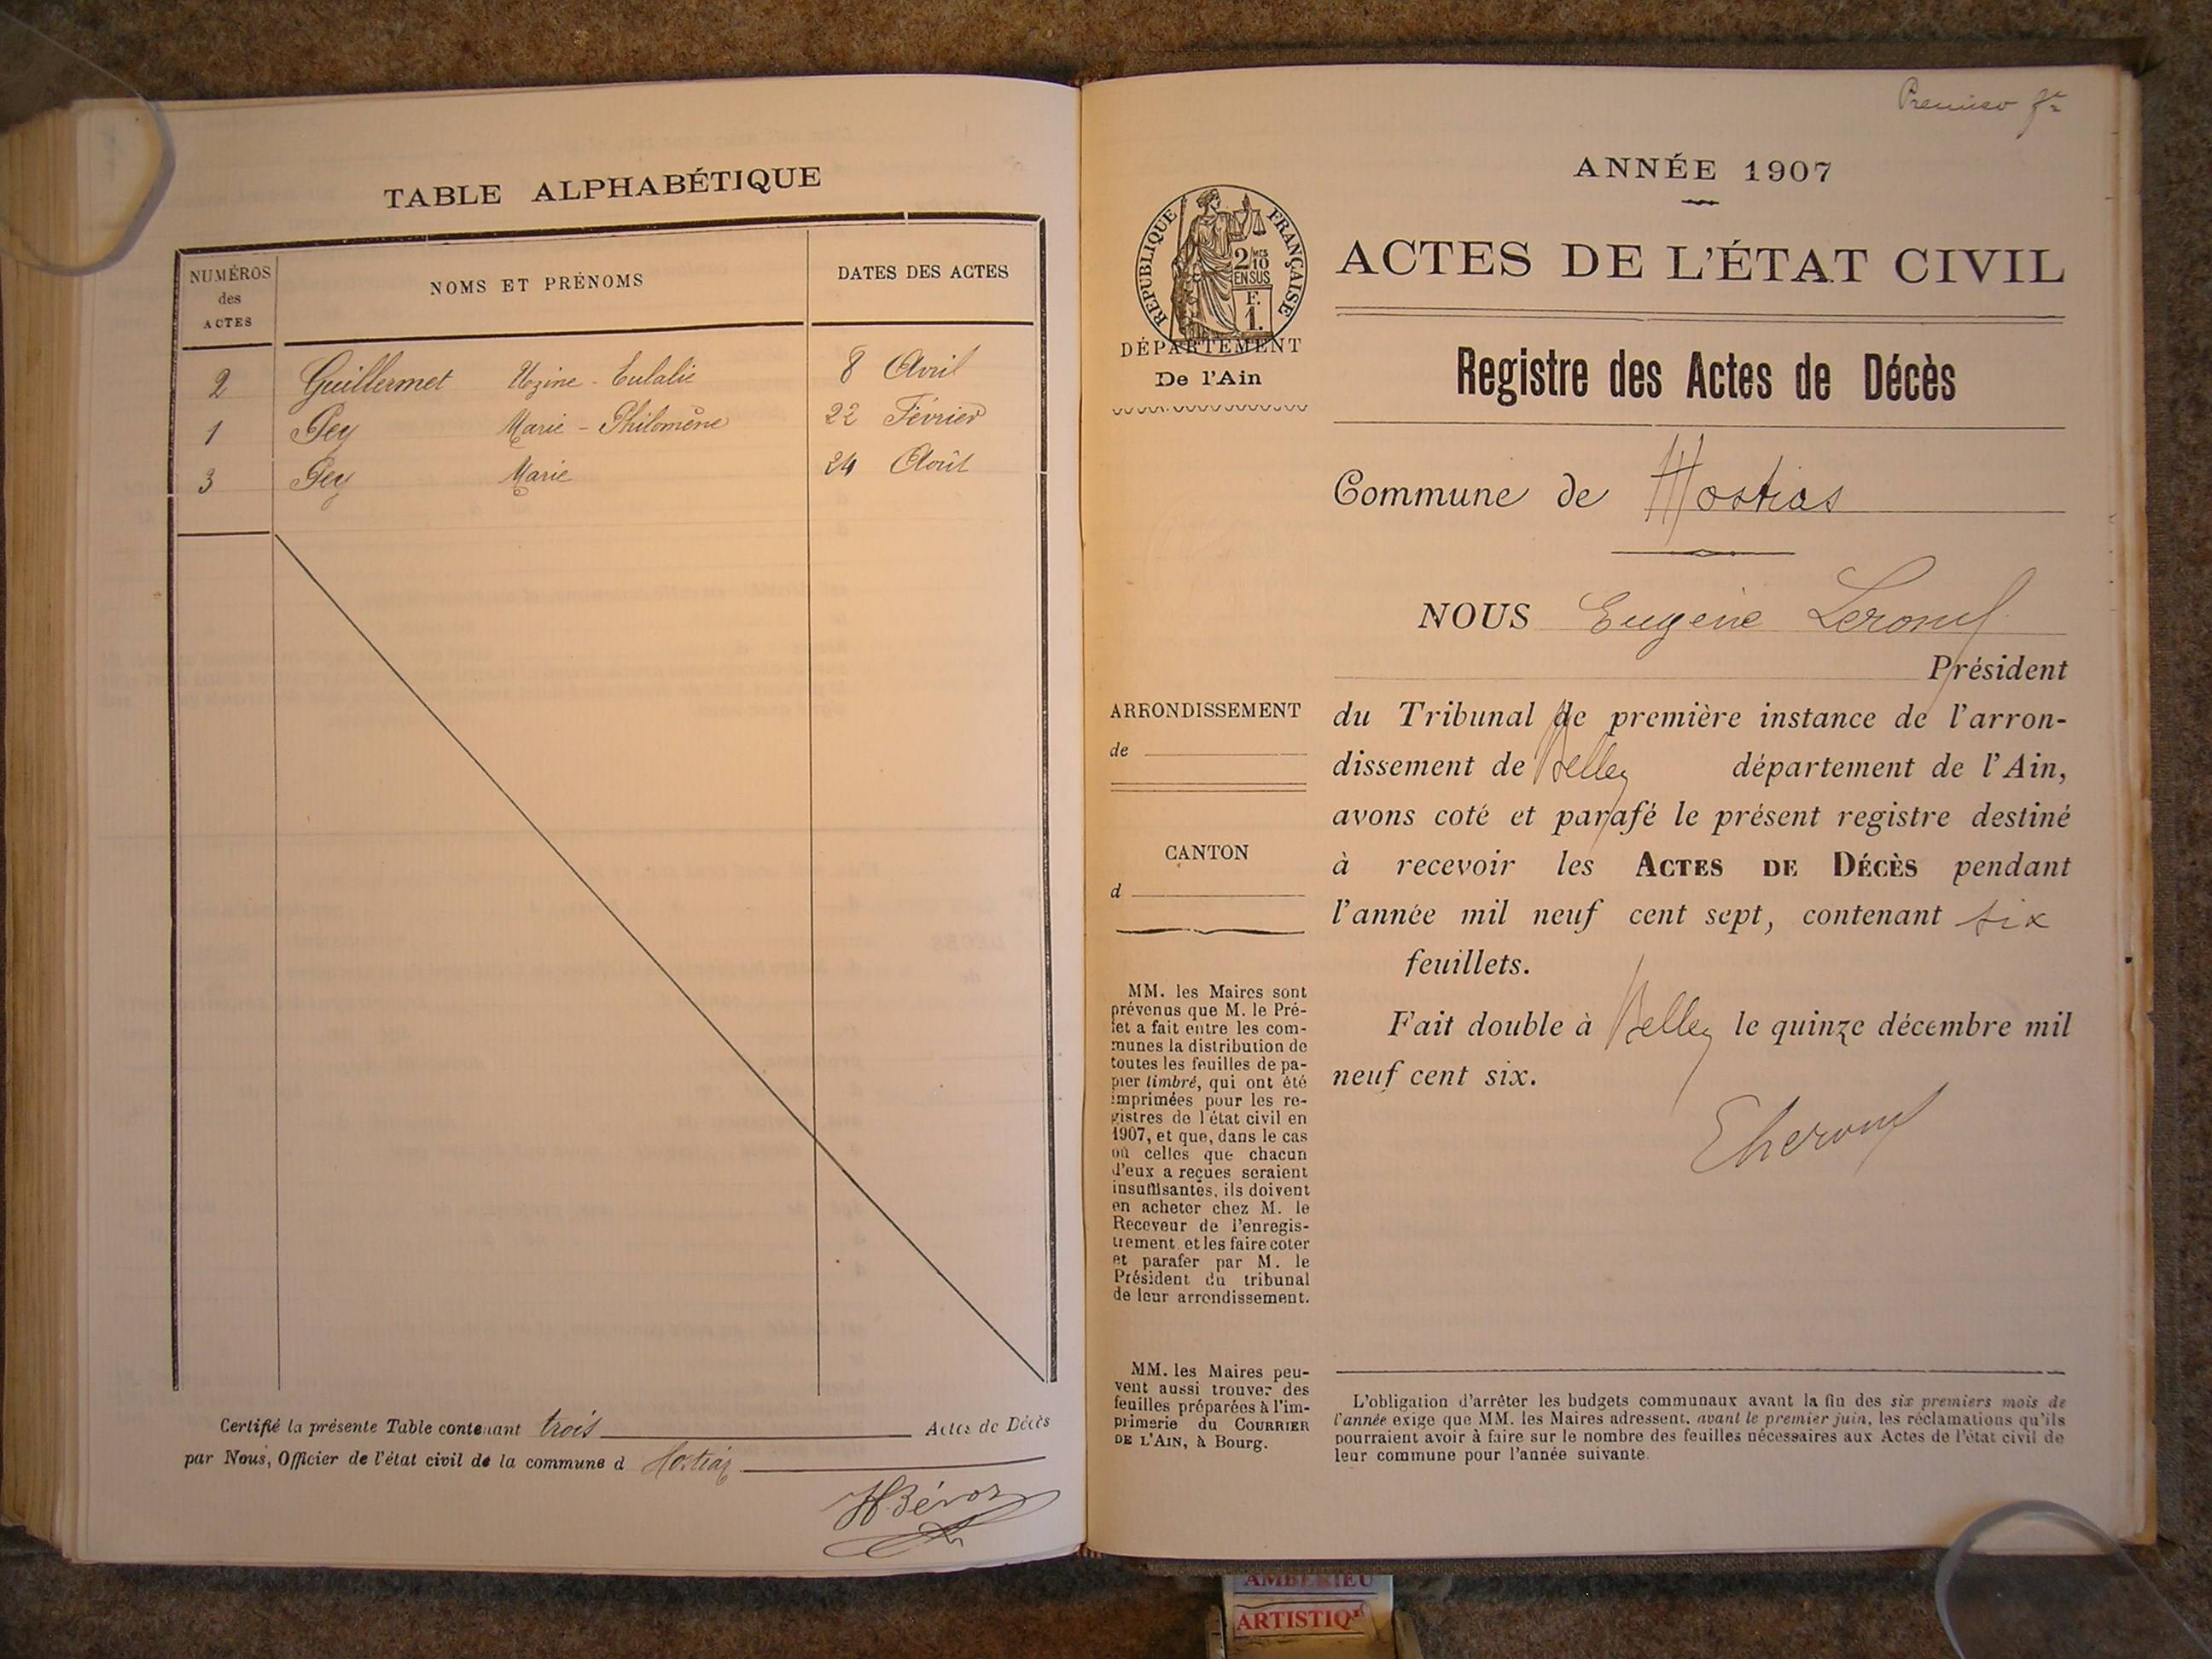 TABLE ALPHABÉTIQUE
NUMÉROS des ACTES
NOMS ET PRÉNOMS
DATES DES ACTES
2 Guillermet Uzine - Eulalie 8 Avril
1 Pey Marie - Philomène 22 Février
3 Pey Marie 24 Août
Certifié la présente Table contenant trois Actes de Décès
par Nous, Officier de l'état civil de la commune d Hostias
Premier
ANNÉE 1907
RÉPUBLIQUE FRANÇAISE
2/10 MES
EN SUS
F.
1.
DÉPARTEMENT
De l'Ain
ACTES DE L'ÉTAT CIVIL
Registre des Actes de Décès
Commune de Hostias
NOUS Eugène
Président
du Tribunal de première instance de l'arron-
dissement de Belley département de l'Ain,
avons coté et parafé le présent registre destiné
à recevoir les ACTES DE DÉCÈS pendant
l'année mil neuf cent sept, contenant six
feuillets.
Fait double à Belley le quinze décembre mil
neuf cent six.
ARRONDISSEMENT
de
CANTON
d
MM. les Maires sont
prévenus que M. le Pré-
fet a fait entre les com-
munes la distribution de
toutes les feuilles de pa-
pier timbré, qui ont été
imprimées pour les re-
gistres de l'état civil en
1907, et que, dans le cas
où celles que chacun
d'eux a reçues seraient
insuffisantes, ils doivent
en acheter chez M. le
Receveur de l'enregis-
trement et les faire coter
et parafer par M. le
Président du tribunal
de leur arrondissement.
MM. les Maires peu-
vent aussi trouver des
feuilles préparées à l'im-
primerie du COURRIER
DE L'AIN, à Bourg.
L'obligation d'arrêter les budgets communaux avant la fin des six premiers mois de
l'année exige que MM. les Maires adressent, avant le premier juin, les réclamations qu'ils
pourraient avoir à faire sur le nombre des feuilles nécessaires aux Actes de l'état civil de
leur commune pour l'année suivante.
AMBERIEU
ARTISTIQ